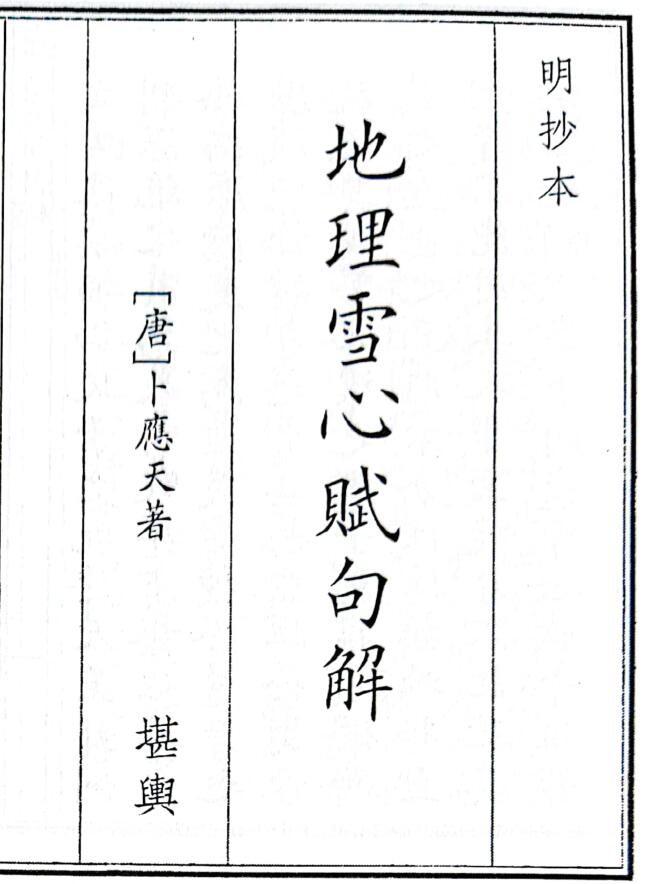 明抄本
地理雪心賦句解
[唐]卜應天著 堪輿